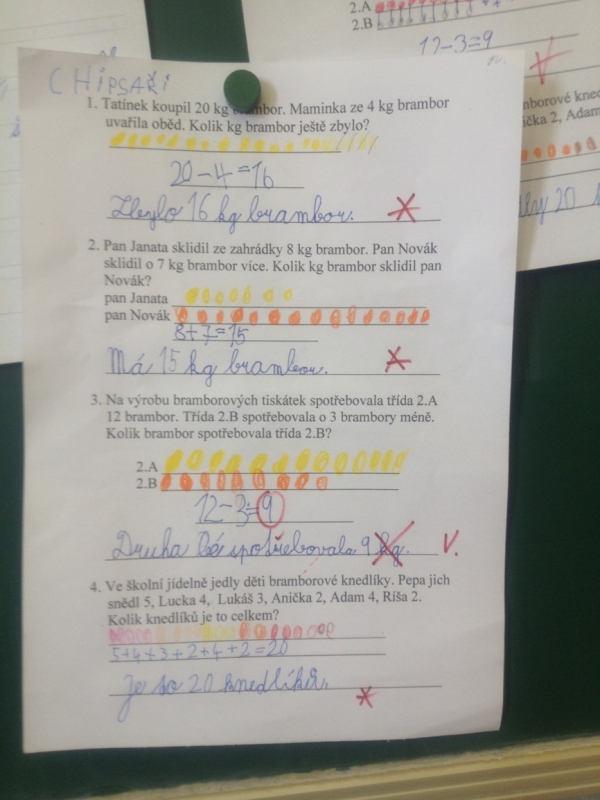 2.A
2.B
12-3=9
CHIPSAŘI
1. Tatínek koupil 20 kg brambor. Maminka ze 4 kg brambor
uvařila oběd. Kolik kg brambor ještě zbylo?
20-4=16
Zbylo 16 kg brambor.
2. Pan Janata sklidil ze zahrádky 8 kg brambor. Pan Novák
sklidil o 7 kg brambor více. Kolik kg brambor sklidil pan
Novák?
pan Janata
pan Novák
8+7=15
Má 15 kg brambor.
3. Na výrobu bramborových tiskátek spotřebovala třída 2.A
12 brambor. Třída 2.B spotřebovala o 3 brambory méně.
Kolik brambor spotřebovala třída 2.B?
2.A
2.B
12-3=9
Druha Bé spotřebovala 9 kg. V.
4. Ve školní jídelně jedly děti bramborové knedlíky. Pepa jich
snědl 5, Lucka 4, Lukáš 3, Anička 2, Adam 4, Ríša 2.
Kolik knedlíků je to celkem?
5+4+3+2+4+2=20
Je to 20 knedlíků.
2, Adam
20